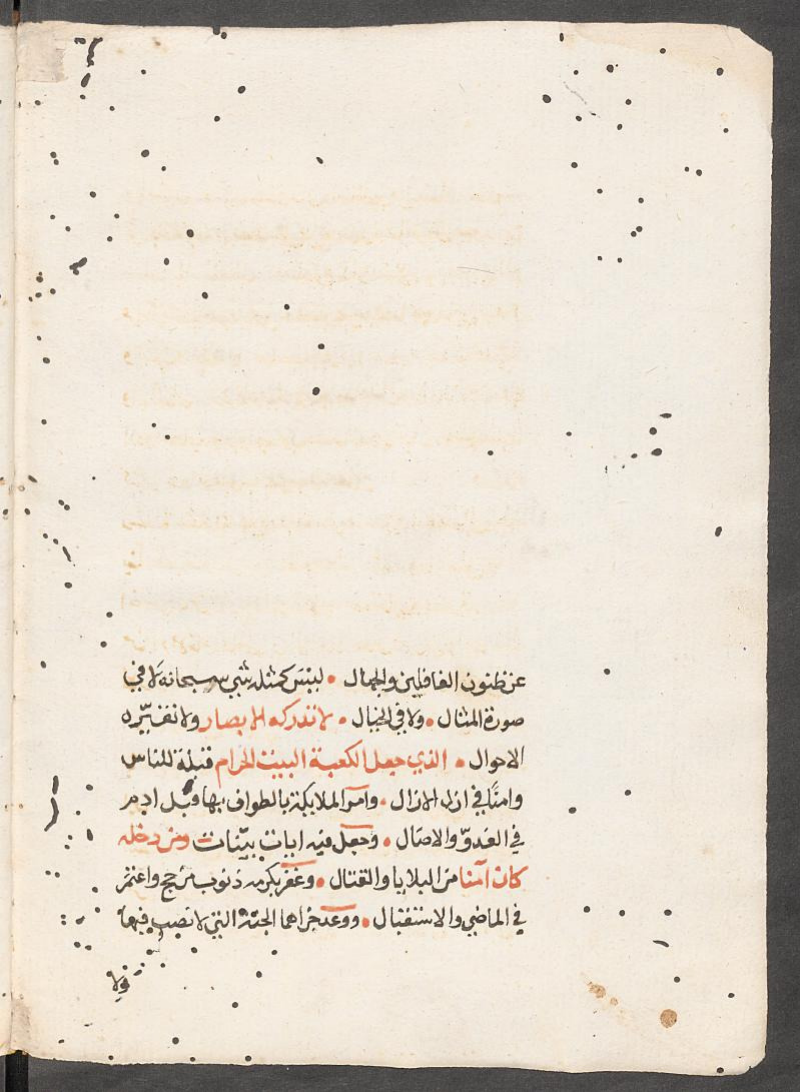 عن ظنون الغافلين والجهال • ليس كمثله شيء سبحانه لا في
صورة المثال • ولا في الخيال • لا تدركه الابصار ولا تغيّره
الاحوال • الذي جعل الكعبة البيت الحرام قبلة للناس
وامنًا في ازل الازال • وامر الملايكة بالطواف بها قبل ادم
في الغدوّ والاصال • وجعل فيه ايات بيّنات ومن دخله
كان آمنا من البلايا والقتال • وغفر بكرمه ذنوب من حج واعتمر
في الماضي والاستقبال • ووعد جزاهما الجنة التي لا نصب فيها
ولا